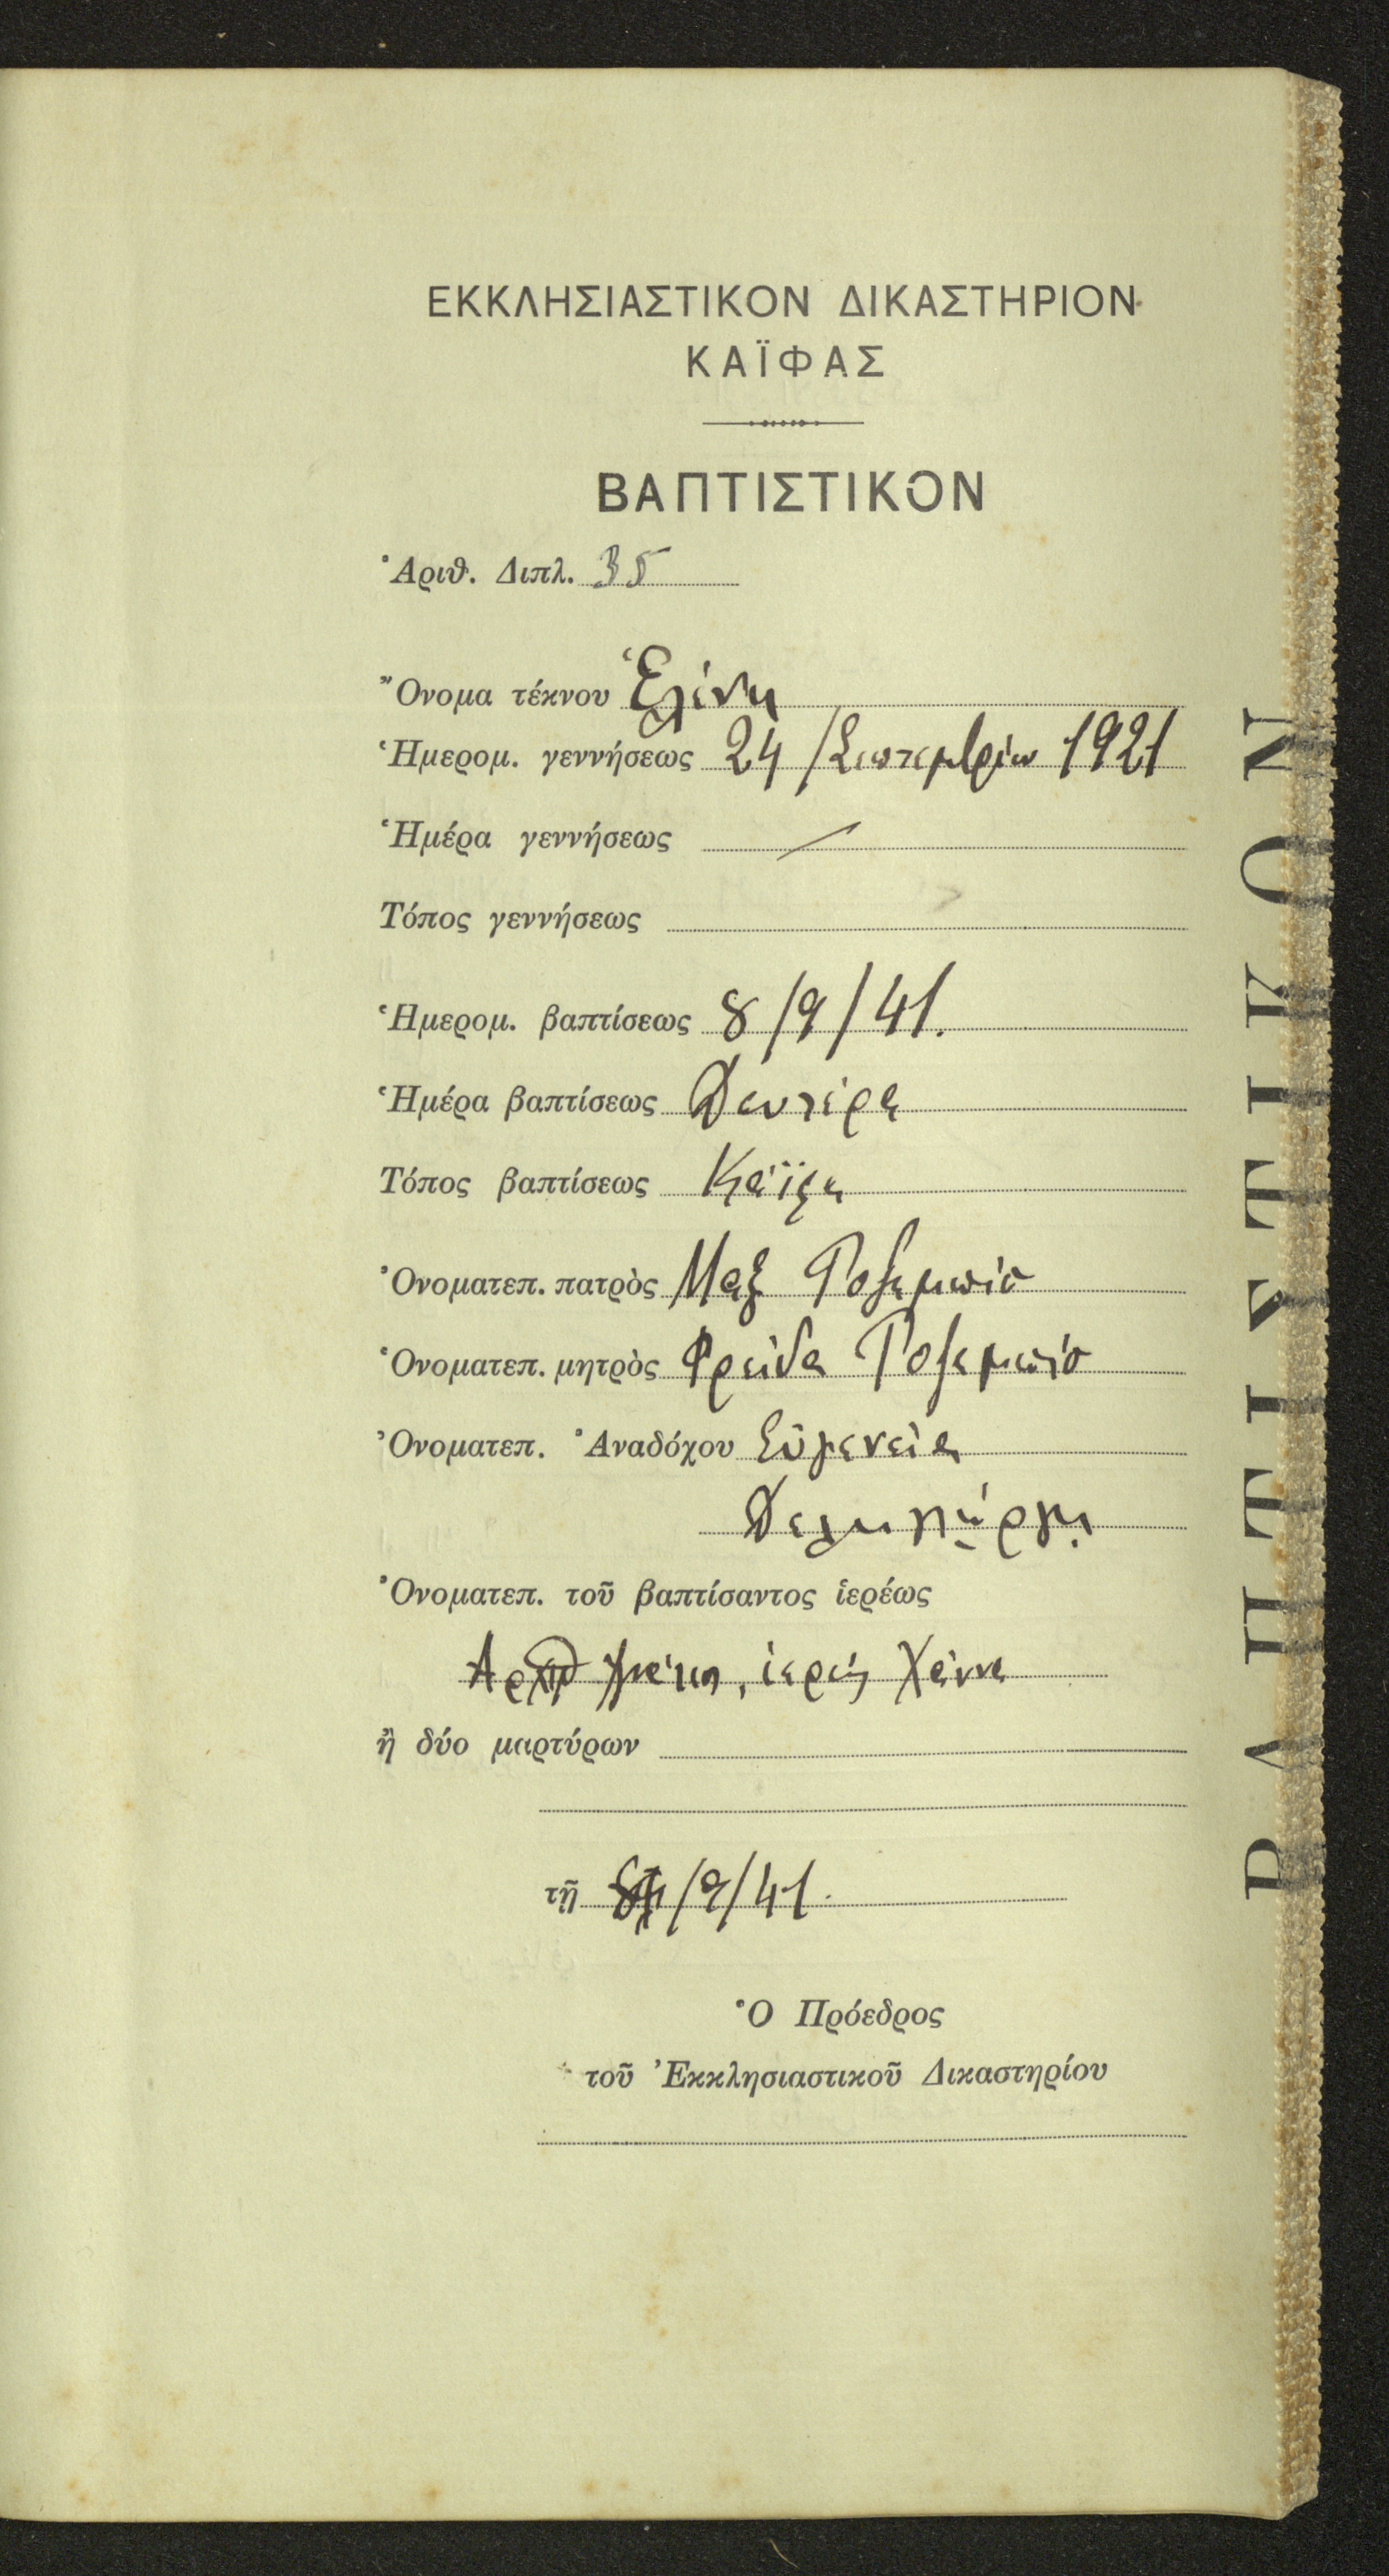 ΕΚΚΛΗΣΙΑΣΤΙΚΟΝ ΔΙΚΑΣΤΗΡΙΟΝ
ΚΑΪΦΑΣ
ΒΑΠΤΙΣΤΙΚΟΝ
Ἀριθ. Διπλ. 35
Ὄνομα τέκνου Ἑλένη
Ἡμερομ. γεννήσεως 24/Σεπτεμβρίου 1921
Ἡμέρα γεννήσεως
Τόπος γεννήσεως
Ἡμερομ. βαπτίσεως 8/9/41.
Ἡμέρα βαπτίσεως Δευτέρα
Τόπος βαπτίσεως Καϊφα
Ὀνοματεπ. πατρὸς Μαξ
Ὀνοματεπ. μητρὸς Φρείδα
Ὀνοματεπ. Ἀναδόχου Εὐγενεία
Δεληγιώργη
Ὀνοματεπ. τοῦ βαπτίσαντος ἱερέως
ἱερεύς Χάννα
ἢ δύο μαρτύρων
τῇ /9/41.
Ὁ Πρόεδρος
τοῦ Ἐκκλησιαστικοῦ Δικαστηρίου
ΒΑΠΤΙΣΤΙΚΟΝ